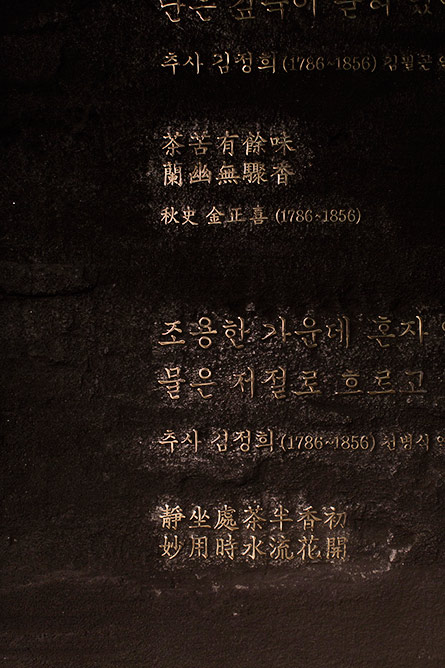 난은 깊숙이 묻혀 있
추사 김정희 (1786~1856)
茶苦有餘味
蘭幽無驟香
秋史 金正喜 (1786~1856)
조용한 가운데 혼자
물은 저절로 흐르고
추사 김정희 (1786~1856)
靜坐處茶半香初
妙用時水流花開